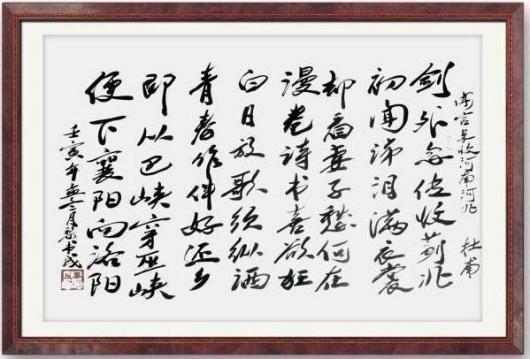 闻官军收河南河北 杜甫
剑外忽传收蓟北
初闻涕泪满衣裳
却看妻子愁何在
漫卷诗书喜欲狂
白日放歌须纵酒
青春作伴好还乡
即从巴峡穿巫峡
便下襄阳向洛阳
壬寅年